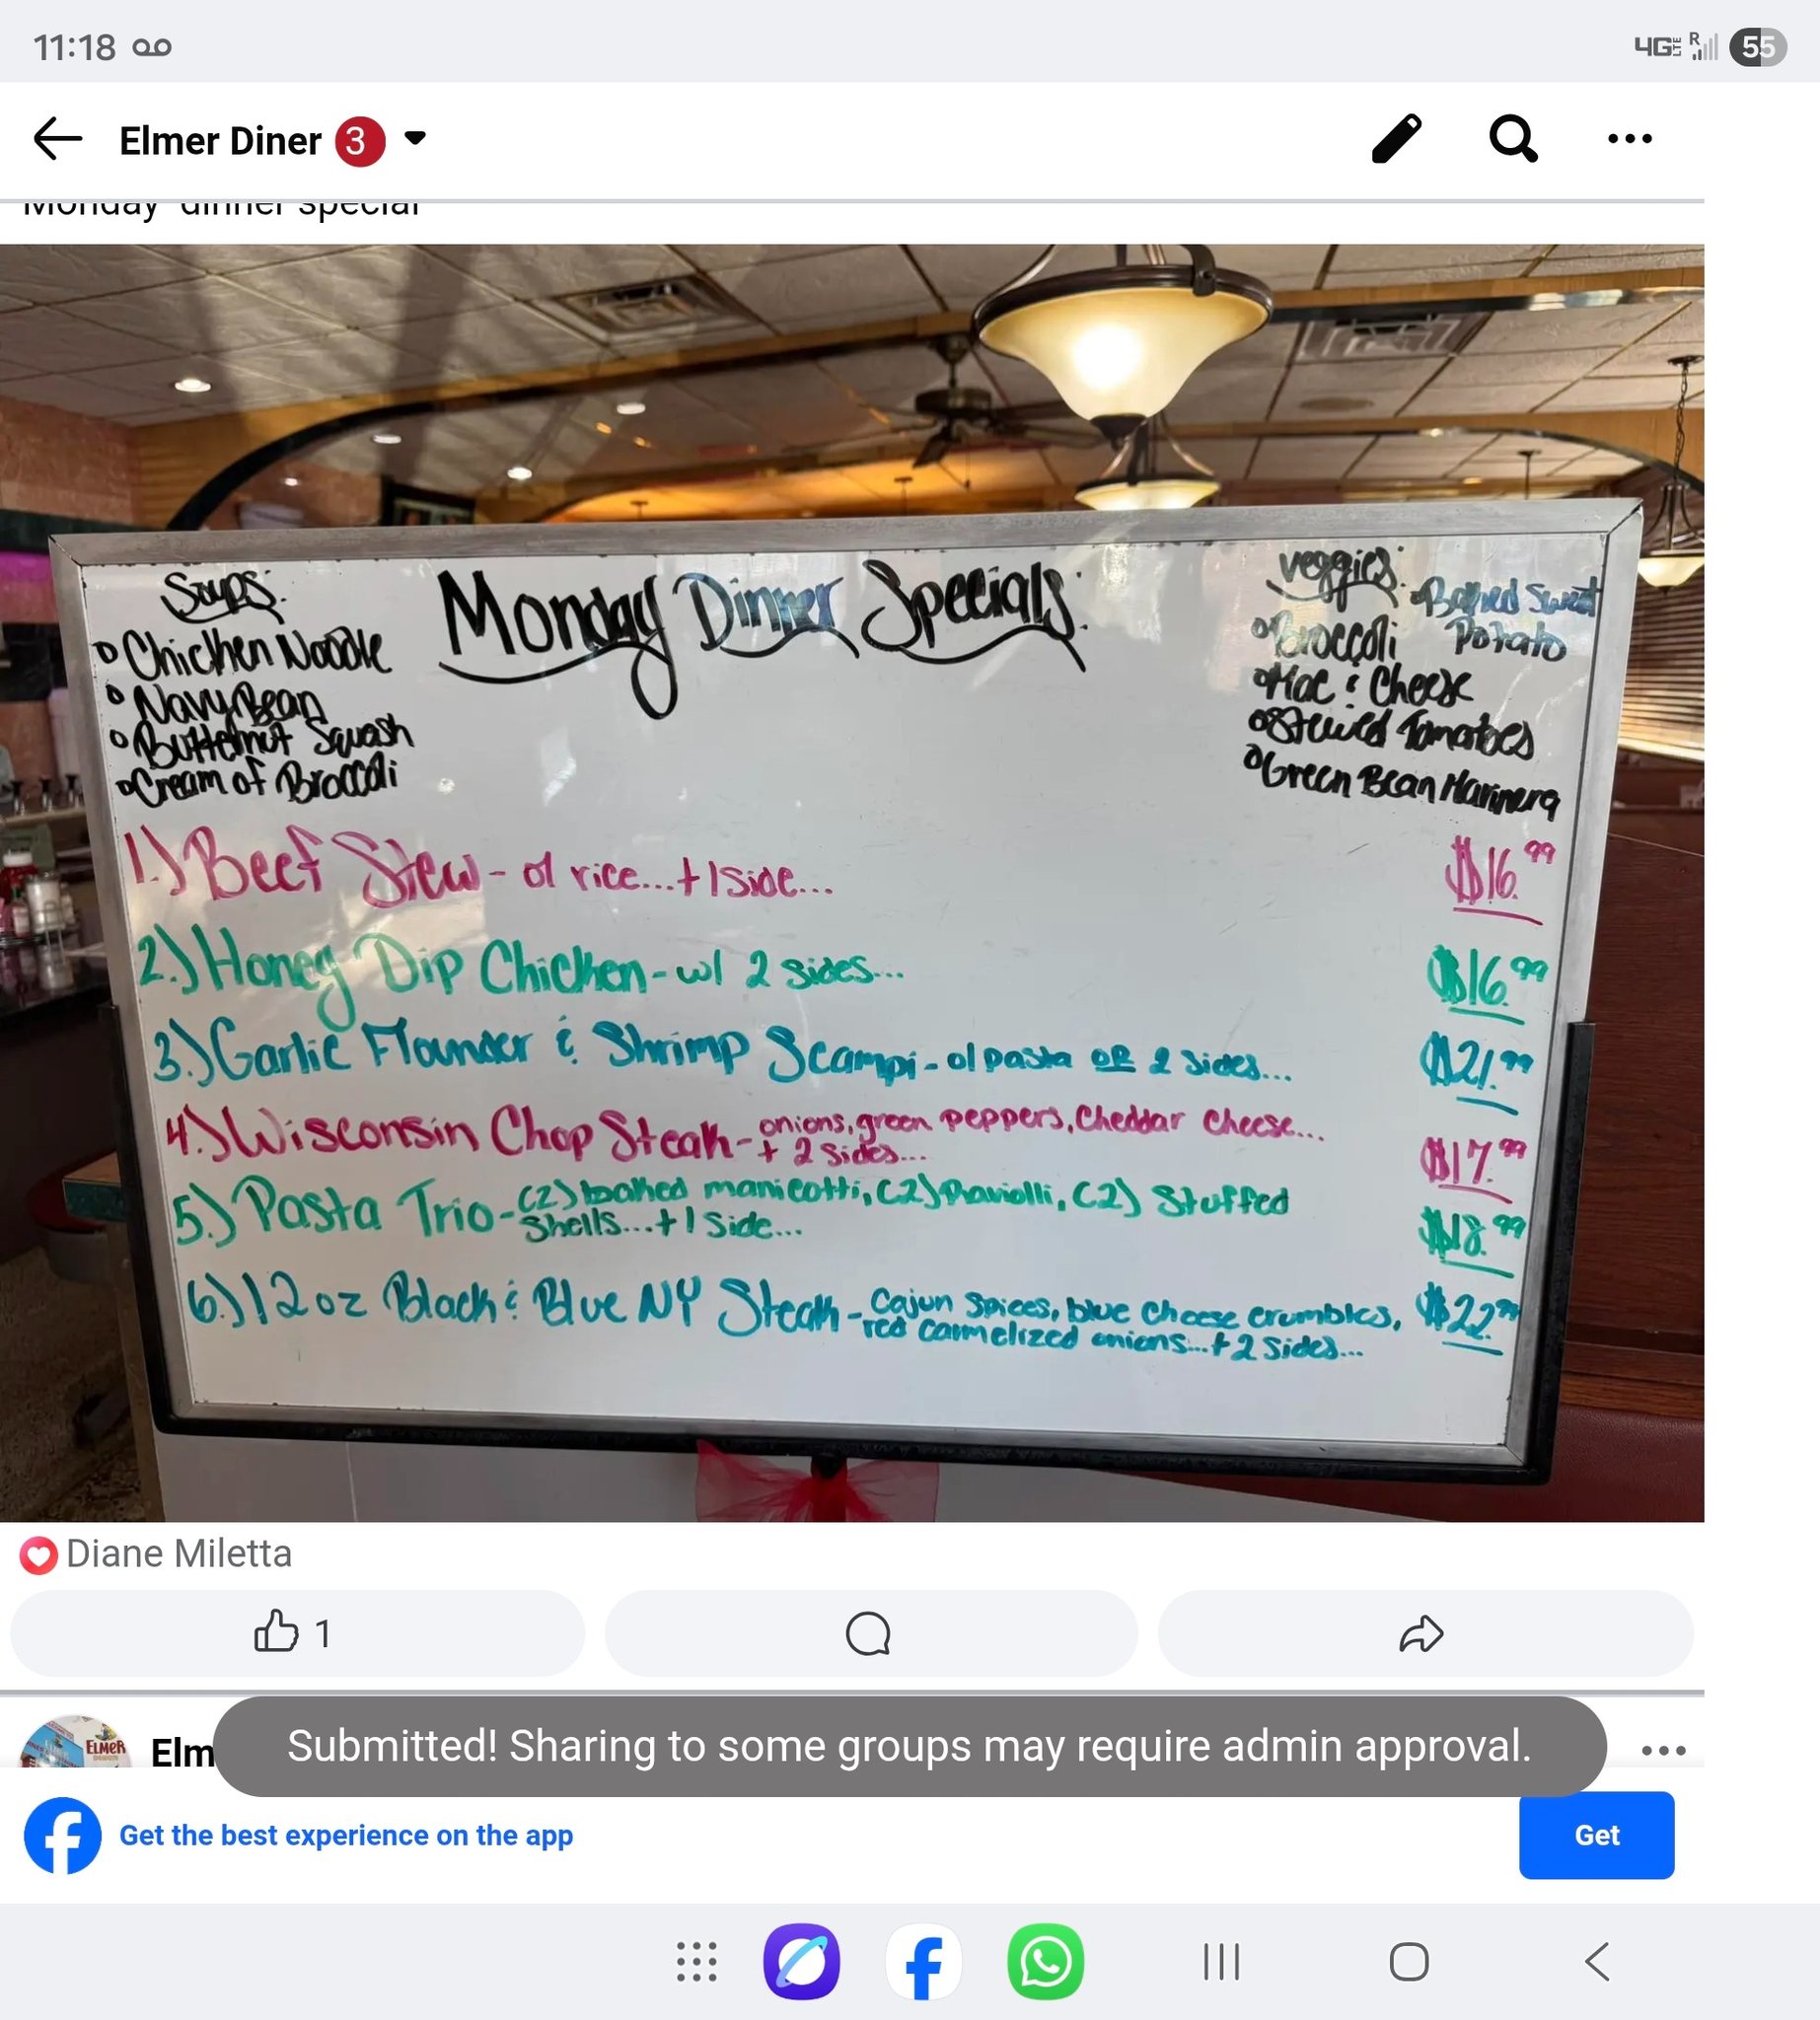 11:18
4G LTE R 55
Elmer Diner 3
Monday dinner special
Soups:
Chicken Noodle
Navy Bean
Butternut Squash
Cream of Broccoli
Monday Dinner Specials:
Veggies:
Baked Sweet Potato
Broccoli
Mac & Cheese
Stewed Tomatoes
Green Bean Marinera
1.) Beef Stew - o/ rice...+ 1 side... $16.99
2.) Honey Dip Chicken - w/ 2 sides... $16.99
3.) Garlic Flounder & Shrimp Scampi - o/ pasta OR 2 sides... $21.99
4.) Wisconsin Chop Steak - onions, green peppers, Cheddar Cheese...
+ 2 sides... $17.99
5.) Pasta Trio - (2) baked manicotti, (2) Raviolli, (2) Stuffed
Shells...+ 1 side... $18.99
6.) 12 oz Black & Blue NY Steak - Cajun Spices, blue cheese crumbles, $22.99
red carmelized onions...+ 2 sides...
Diane Miletta
1
ELMER
Elm
Submitted! Sharing to some groups may require admin approval.
Get the best experience on the app
Get